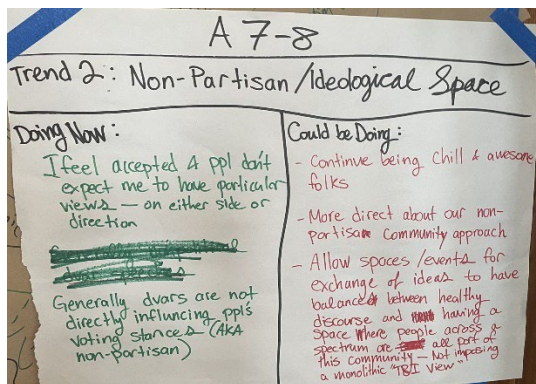 A 7-8
Trend 2: Non-Partisan/Ideological Space
Doing Now:
I feel accepted & ppl don't
expect me to have particular
views — on either side or
direction
Generally dvars are not
directly influncing ppl's
voting stances (AKA
non-partisan)
Could be Doing:
- Continue being chill & awesome
folks
- More direct about our non-
partisan community approach
- Allow spaces/events for
exchange of ideas to have
balance between healthy
discourse and having a
space where people across
spectrum are all part of
this community — Not imposing
a monolithic "TBI View"